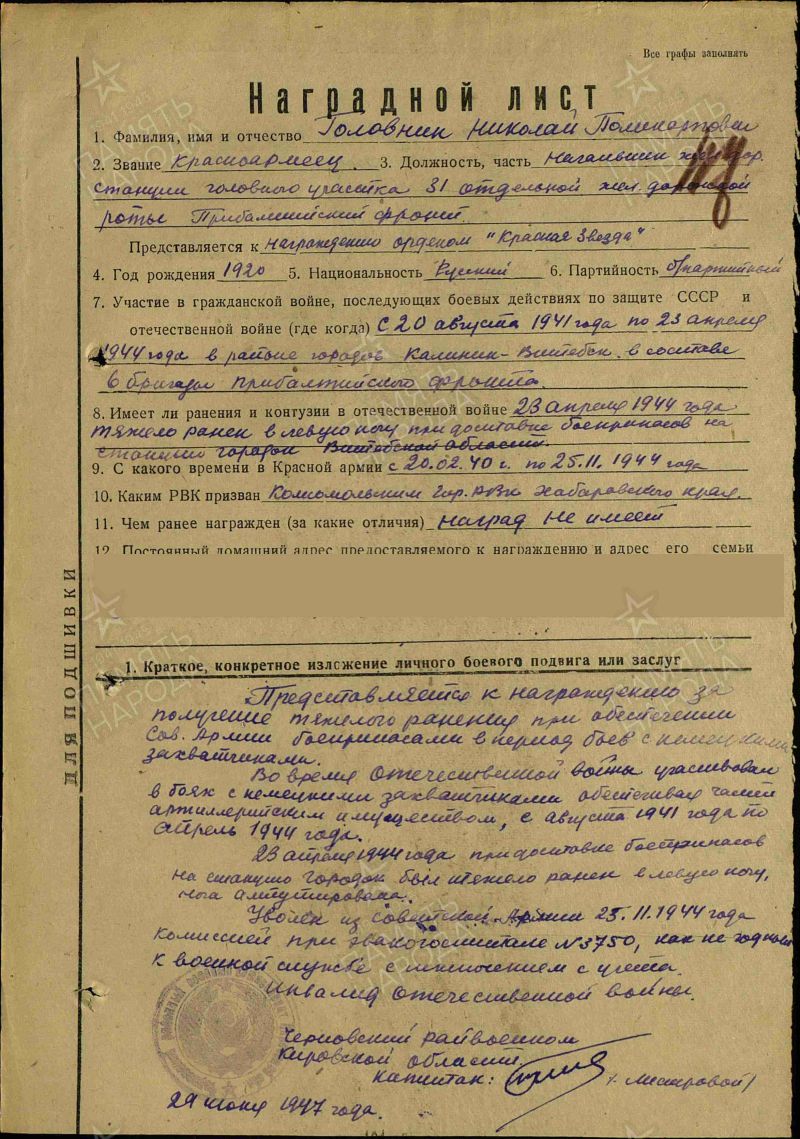 Все графы заполнять
Наградной лист
1. Фамилия, имя и отчество Головнин Николай Поликарпович
2. Звание Красноармеец. 3. Должность, часть Нагаивник жел. дор.
станции головного участка 31 отдельной жел. дорожной
роты Прибалтийский фронт.
Представляется к награждению орденом "Красная Звезда"
4. Год рождения 1920 5. Национальность Русский 6. Партийность б/партийный
7. Участие в гражданской войне, последующих боевых действиях по защите СССР и
отечественной войне (где когда) с 20 августа 1941 года по 23 апреля
1944 года в районе городов Калинин-Витебск в составе
6 бригады прибалтийского фронта.
8. Имеет ли ранения и контузии в отечественной войне 23 апреля 1944 года
тяжело ранен в левую ногу при доставке боеприпасов на
станцию городок Витебской области.
9. С какого времени в Красной армии с 20.02.40 г. по 25.11.1944 года
10. Каким РВК призван Комсомольским Гор. РВК Хабаровского края.
11. Чем ранее награжден (за какие отличия) наград не имеет
12. Постоянный домашний адрес предоставляемого к награждению и адрес его семьи
ДЛЯ ПОДШИВКИ
1. Краткое, конкретное изложение личного боевого подвига или заслуг
Представляется к награждению за
получение тяжелого ранения при обеспечении
Сов. Армии боеприпасами в период боев с немецкими
захватчиками.
Во время Отечественной войны участвовал
в боях с немецкими захватчиками обеспечивая части
артиллерийским имуществом, с августа 1941 года по
апрель 1944 года.
23 апреля 1944 года при доставке боеприпасов
на станцию Городок был тяжело ранен в левую ногу,
нога ампутирована.
Уволен из Советской Армии 25.11.1944 года
комиссией при эвакогоспитале N 3750, как не годный
к военной службе с исключением с учета.
Инвалид Отечественной войны.
Черновский райвоенком
Кировской области
капитан:
29 июня 1947 года.
ПАМЯТЬ
НАРОДА